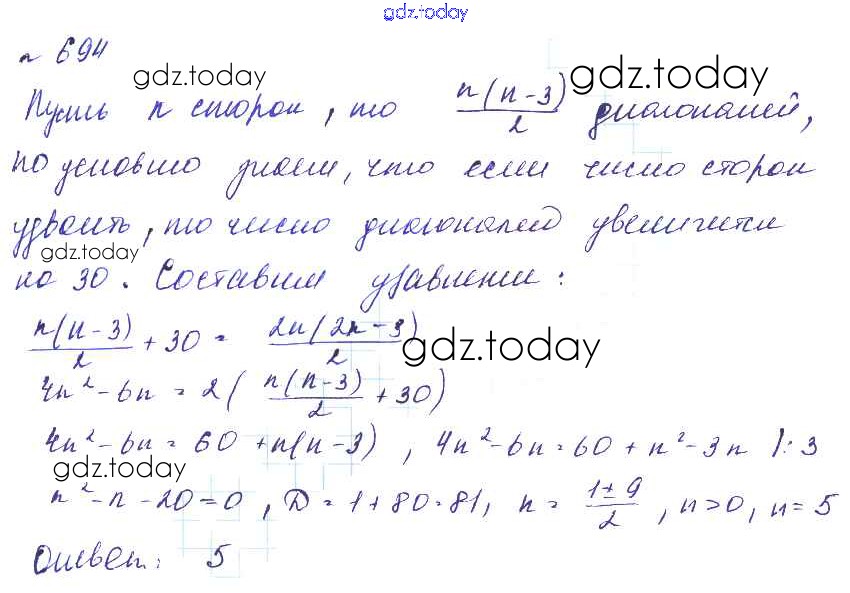 gdz.today
№ 694
gdz.today
gdz.today
Пусть n сторон, то n(n-3)/2 диагоналей,
по условию знаем, что если число сторон
удвоить, то число диагоналей увеличится
gdz.today
на 30. Составим уравнение:
n(n-3)/2 + 30 = 2n(2n-3)/2
gdz.today
4n²-6n = 2(n(n-3)/2 + 30)
4n²-6n = 60 + n(n-3), 4n²-6n = 60 + n²-3n |:3
gdz.today
n²-n-20=0, D=1+80=81, n = 1±9/2, n>0, n=5
Ответ: 5